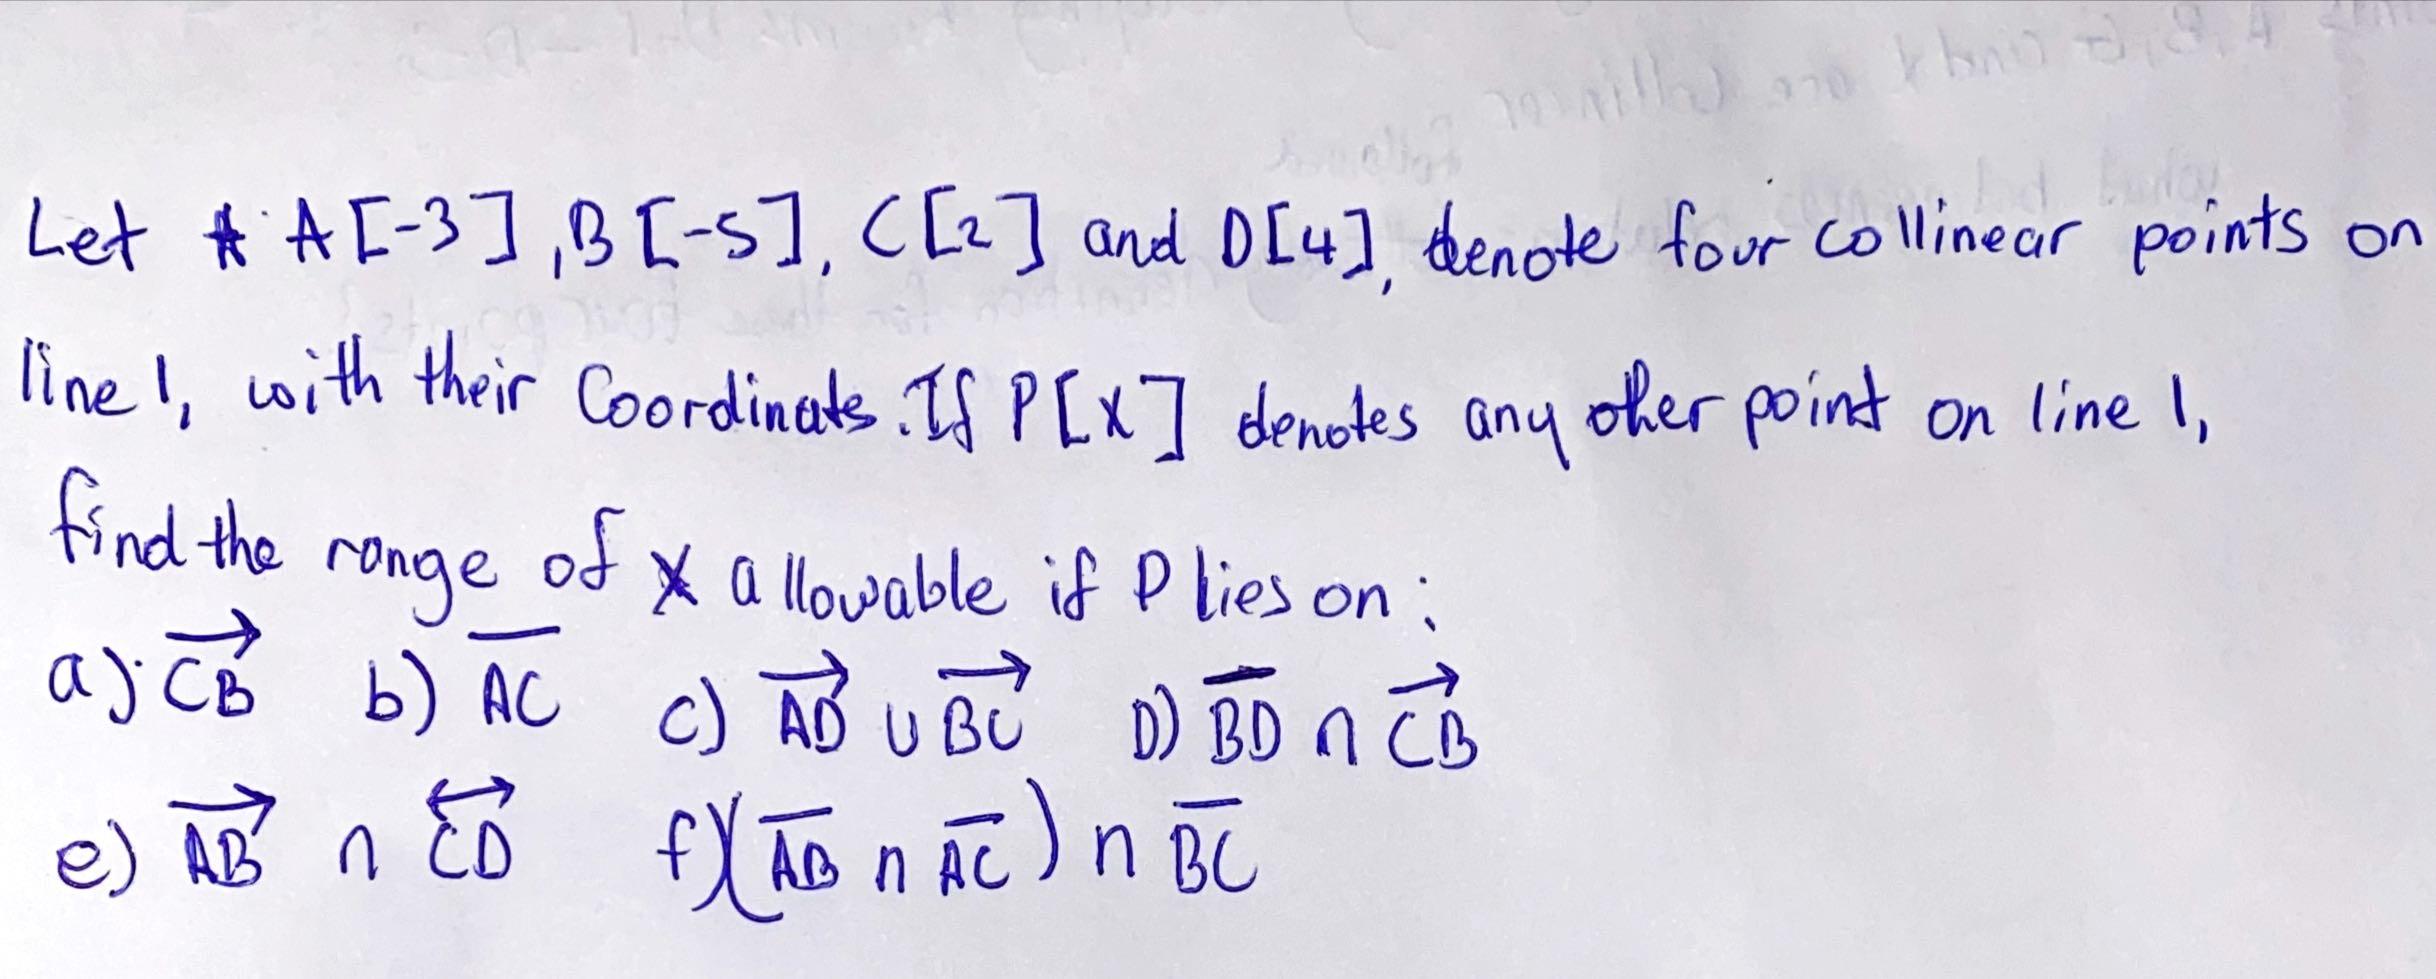 Let A[-3], B[-5], C[2] and D[4], denote four collinear points on
line l, with their Coordinates. If P[x] denotes any other point on line l,
find the range of x allowable if P lies on:
a) \overrightarrow{CB} b) \overline{AC} c) \overrightarrow{AD} ∪ \overrightarrow{BC} D) \overline{BD} ∩ \overrightarrow{CB}
e) \overrightarrow{AB} ∩ \overleftrightarrow{CD} f) (\overline{AB} ∩ \overline{AC}) ∩ \overline{BC}